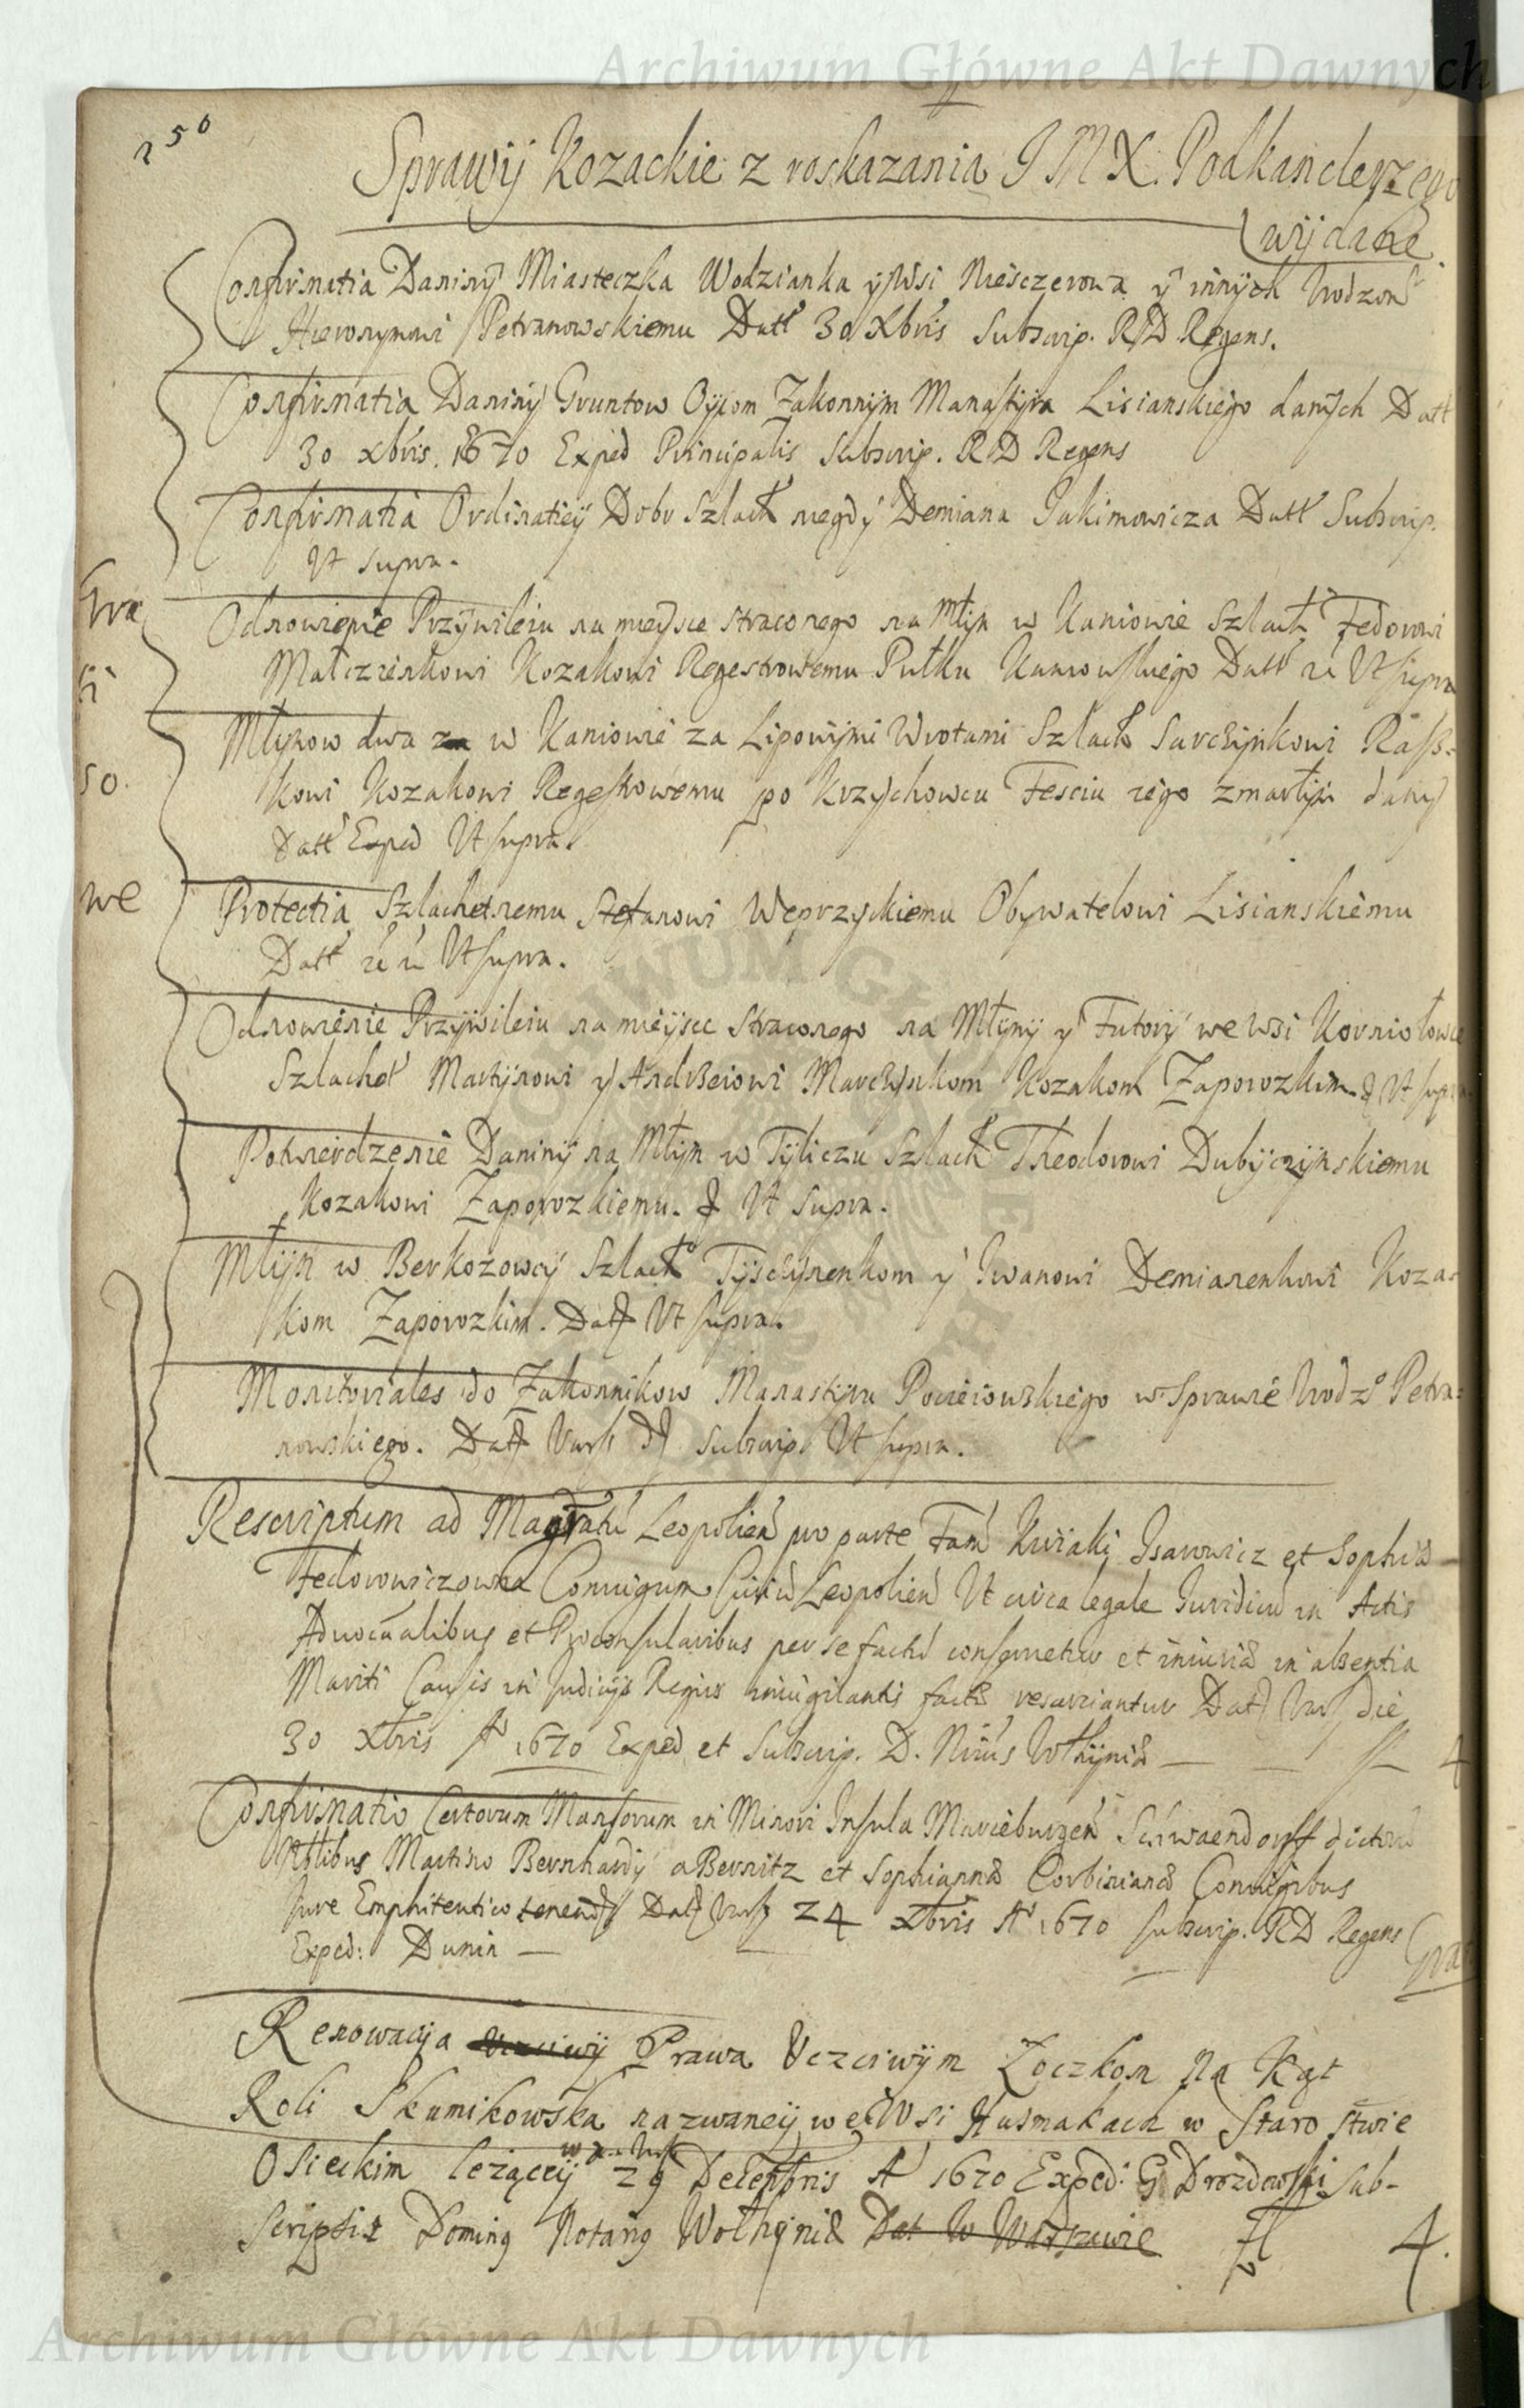 Archiwum Główne Akt Dawnych
250
Sprawÿ Kozackie z roskazania J M X. Podkanclerzego
wÿdane
Confirmatia Daninÿ Miasteczka Wodzianka ÿ Wsi Niesczerowa ÿ innÿch Urodzon
Hieronymowi Petranowskiemu Datt 30 Xbris Subscrip. R D Regens.
Confirmatia Daninÿ Gruntow Oÿcom Zakonnÿm Manastÿra Lisianskiego danÿch Datt
30 xbris. 1670 Exped Principalis Subscrip. R D Regens
Confirmatia Ordinatieÿ Dobr Szlach negdÿ Demiana Jakimowicza Datt Subscrip.
Ut supra.
Odnowienie Przÿwileiu na mieÿsce straconego na Młÿn w Kaniowie Szlach Fedorowi
Małczienkowi Kozakowi Regestrowemu Pułku Kaniowskiego Datt Ut supra
Młÿnow dwa w Kaniowie za Lipowÿmi Wrotami Szlach Sarczÿnkowi Rass-
kowi Kozakowi Regestrowemu po Krzychowcu Tesciu iego zmarłÿm danÿ
Datt Exped Ut supra.
Protectia Szlachetnemu Stefanowi Weprzyckiemu Obywatelowi Lisianskiemu
Datt Ut supra.
Odnowienie Przÿwileiu na mieÿsce straconego na Młÿnÿ ÿ Futorÿ we Wsi Korniołowce
Szlachet Martÿnowi ÿ Andrzeiowi Marczÿnkom Kozakom Zaporozkim Ut supra
Potwierdzenie Daninÿ na Młÿn w Tÿliczu Szlach Theodorowi Dubÿczÿnskiemu
Kozakowi Zaporozkiemu. Ut supra.
Młÿn w Berkozowcÿ Szlach Tÿsczÿnenkom ÿ Iwanowi Demianenkowi Koza-
kom Zaporozkim. Datt Ut supra.
Monitoriales do Zakonnikow Manastÿru w Sprawie Urodzo Petra-
nowskiego. Datt Vars Subscrip. Ut supra.
Rescriptum ad Magratu Leopolien pro parte Fam Kiriaki Isarowicz et Sophiæ
Fedorowiczowna Coniugum Civiu Leopolien Ut circa legale Iuridicu in Actis
Advocatialibus et Proconsularibus per se factu conservetur et iniuria in absentia
Mariti Causis in Iudicÿs Regiis invigilantis facta resarciantur Datt Vars die
30 Xbris A 1670 Exped et Subscrip. D. Nrius Wolhÿniæ fl 4
Confirmatio Certorum Mansorum in Minori Insula Marieburgen Schwaendorff dictoru
Nobilibus Martino Bernhardÿ a Bernitz et Sophiannæ Corbinianæ Coniugibus
Iure Emphiteutico tenend Datt Vars 24 Xbris A 1670 subscrip. R D Regens
Exped: Dunin
Renowacÿa Uczciwÿ Prawa Uczciwÿm Zoczkom Na Kąt
Roli Skumikowska nazwaneÿ we Wsi Husmakach w Starostwie
Osieckim lezącceÿ 29 Decembris A 1670 Exped: G Drozdowski Sub-
scriptis Doming Notarÿ Wolhÿniæ Dat w Warszawie fl 4.
Gra
ti
so.
we
Archiwum Główne Akt Dawnych